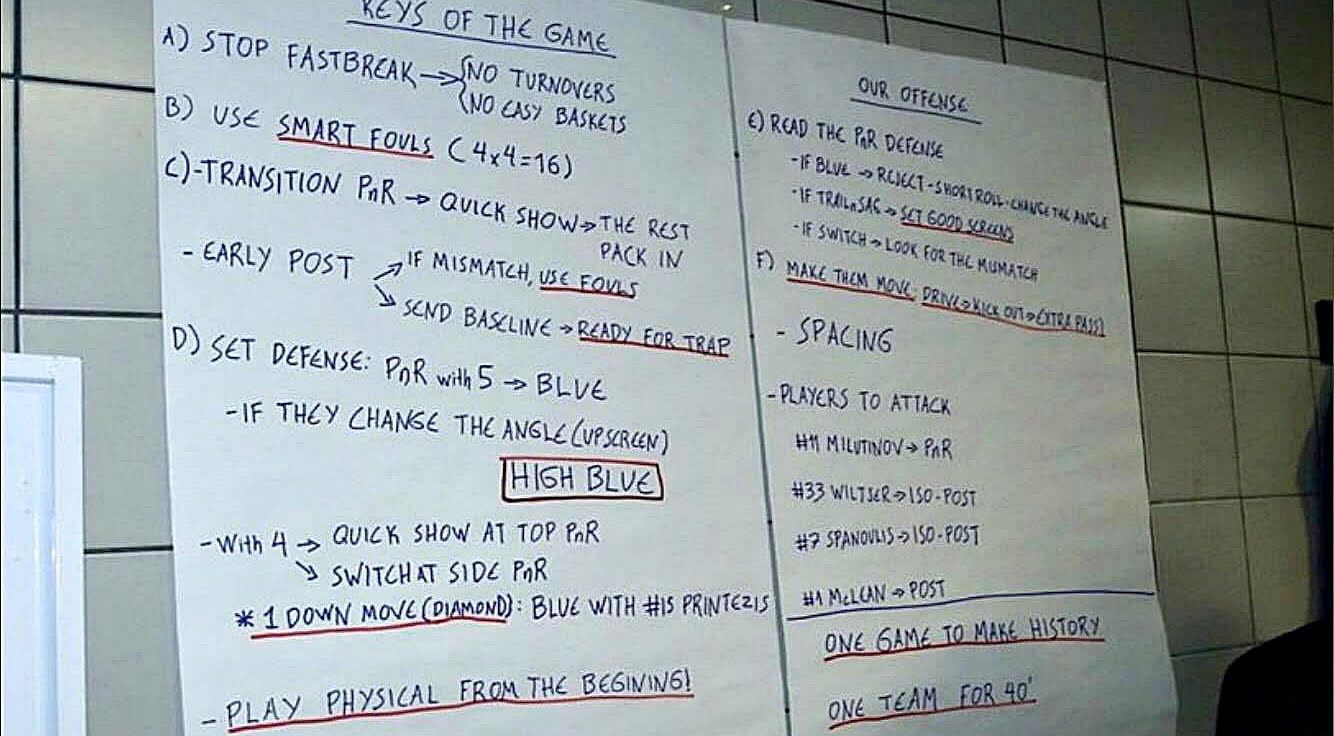 KEYS OF THE GAME
A) STOP FASTBREAK → { NO TURNOVERS
NO EASY BASKETS
B) USE SMART FOULS (4x4=16)
C)-TRANSITION PnR → QUICK SHOW → THE REST
PACK IN
- EARLY POST ↗ IF MISMATCH, USE FOULS
↘ SEND BASELINE → READY FOR TRAP
D) SET DEFENSE: PnR with 5 → BLUE
-IF THEY CHANGE THE ANGLE (UPSCREEN)
HIGH BLUE
-With 4 → QUICK SHOW AT TOP PnR
↘ SWITCH AT SIDE PnR
* 1 DOWN MOVE (DIAMOND): BLUE WITH #15 PRINTEZIS
- PLAY PHYSICAL FROM THE BEGINING!
OUR OFFENSE
E) READ THE PnR DEFENSE
-IF BLUE → REJECT - SHORT ROLL - CHANGE THE ANGLE
-IF TRAILnSAG → SET GOOD SCREENS
-IF SWITCH → LOOK FOR THE MUMATCH
F) MAKE THEM MOVE: DRIVE → KICK OUT → EXTRA PASS)
- SPACING
-PLAYERS TO ATTACK
#11 MILUTINOV → PnR
#33 WILTJER → ISO-POST
#7 SPANOULIS → ISO-POST
#1 McLEAN → POST
ONE GAME TO MAKE HISTORY
ONE TEAM FOR 40'